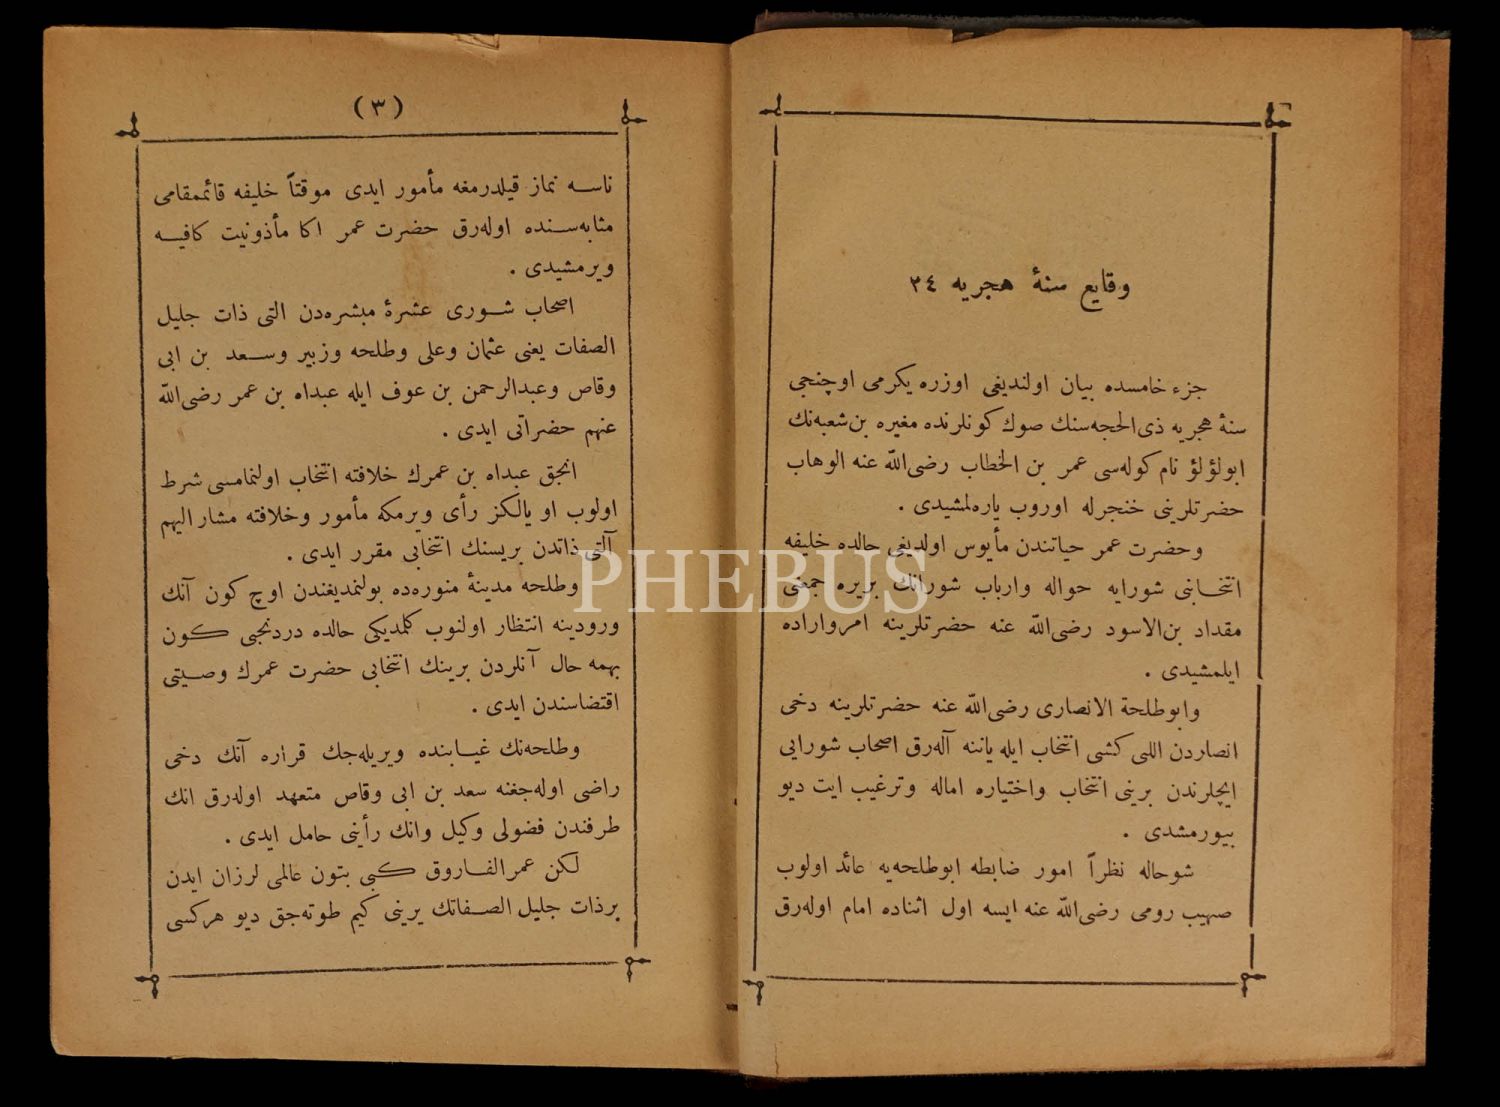 وقایع سنۀ هجریه ٣٤
جزء خامسده بیان اولندیغی اوزره یکرمی اوچنجی
سنۀ هجریه ذی‌الحجه‌سنك صوك کونلرنده مغیره بن‌شعبه‌نك
ابولؤلؤ نام کوله‌سی عمر بن الخطاب رضی‌الله عنه الوهاب
حضرتلرینی خنجرله اوروب یاره‌لمشیدی .
وحضرت عمر حیاتندن مأیوس اولدیغی حالده خلیفه
انتخابنی شورایه حواله وارباب شورانك بریره جمعنی
مقداد بن‌الاسود رضی‌الله عنه حضرتلرینه امرواراده
ایلمشیدی .
وابوطلحة الانصاری رضی‌الله عنه حضرتلرینه دخی
انصاردن اللی کشی انتخاب ایله یاننه آله‌رق اصحاب شورایی
ایچلرندن برینی انتخاب واختیاره اماله وترغیب ایت دیو
بیورمشدی .
شوحاله نظراً امور ضابطه ابوطلحه‌یه عائد اولوب
صهیب رومی رضی‌الله عنه ایسه اول اثناده امام اوله‌رق
(٣)
ناسه نماز قیلدرمغه مأمور ایدی موقتاً خلیفه قائممقامی
مثابه‌سنده اوله‌رق حضرت عمر اکا مأذونیت کافیه
ویرمشیدی .
اصحاب شوری عشرۀ مبشره‌دن التی ذات جلیل
الصفات یعنی عثمان وعلی وطلحه وزبیر وسعد بن ابی
وقاص وعبدالرحمن بن عوف ایله عبداه بن عمر رضی‌الله
عنهم حضراتی ایدی .
انجق عبداه بن عمرك خلافته انتخاب اولنمامسی شرط
اولوب او یالکز رأی ویرمکه مأمور وخلافته مشارالیهم
آلتی ذاتدن بریسنك انتخابی مقرر ایدی .
وطلحه مدینۀ منوره‌ده بولنمدیغندن اوچ کون آنك
ورودینه انتظار اولنوب کلمدیکی حالده دردنجی کون
بهمه حال آنلردن برینك انتخابی حضرت عمرك وصیتی
اقتضاسندن ایدی .
وطلحه‌نك غیابنده ویریله‌جك قراره آنك دخی
راضی اوله‌جغنه سعد بن ابی وقاص متعهد اوله‌رق انك
طرفندن فضولی وکیل وانك رأینی حامل ایدی .
لکن عمرالفاروق کبی بتون عالمی لرزان ایدن
برذات جلیل الصفاتك یرینی کیم طوته‌جق دیو هرکسی
PHEBUS